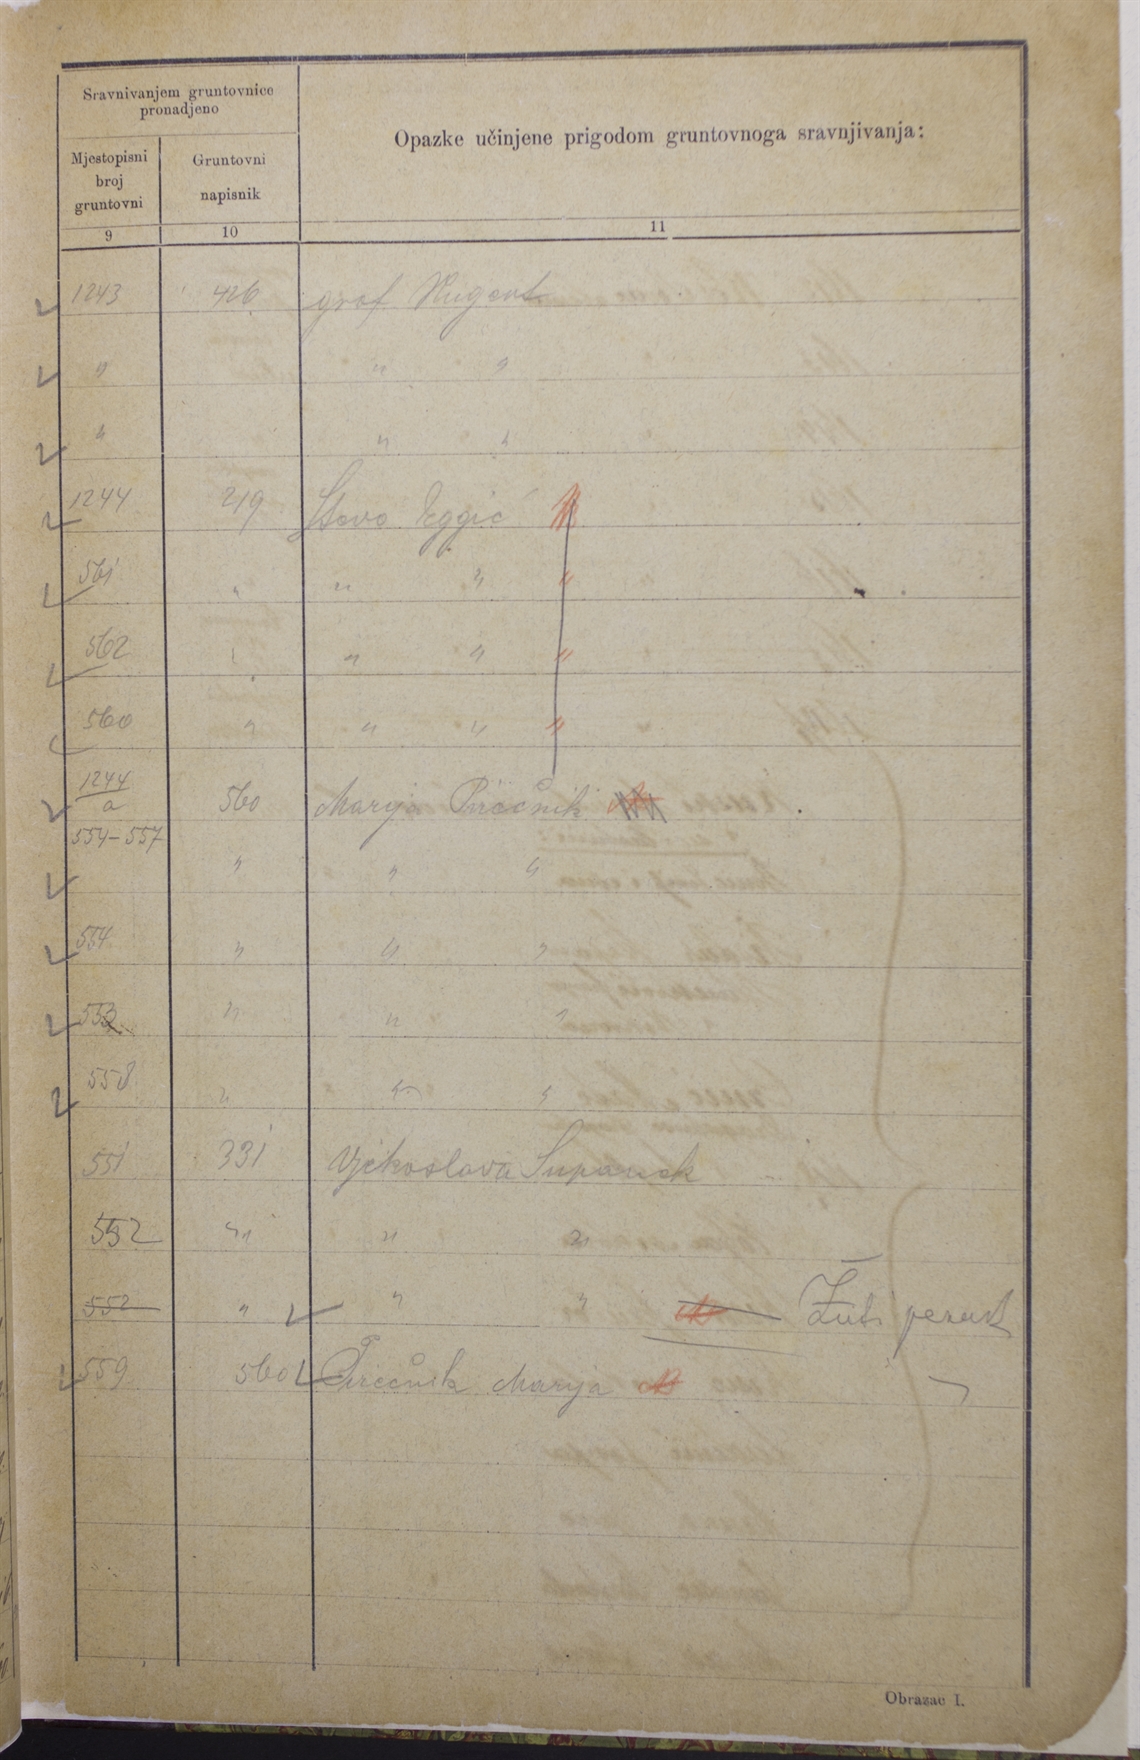 Sravnivanjem gruntovnice
pronadjeno
Opazke učinjene prigodom gruntovnoga sravnjivanja:
Mjestopisni
broj
gruntovni
Gruntovni
napisnik
9 10 11
1243 426 grof Nugent
" " "
" " "
1244 219 Stevo
561 " " " "
562 " " " "
560 " " " "
1244/a 560 Marija
554-557 " " "
554 " " "
553 " " "
558 " " "
551 331 Vjekoslava Supanek
552 " " "
552 " " " Žuti
559 560 Marija
Obrazac I.